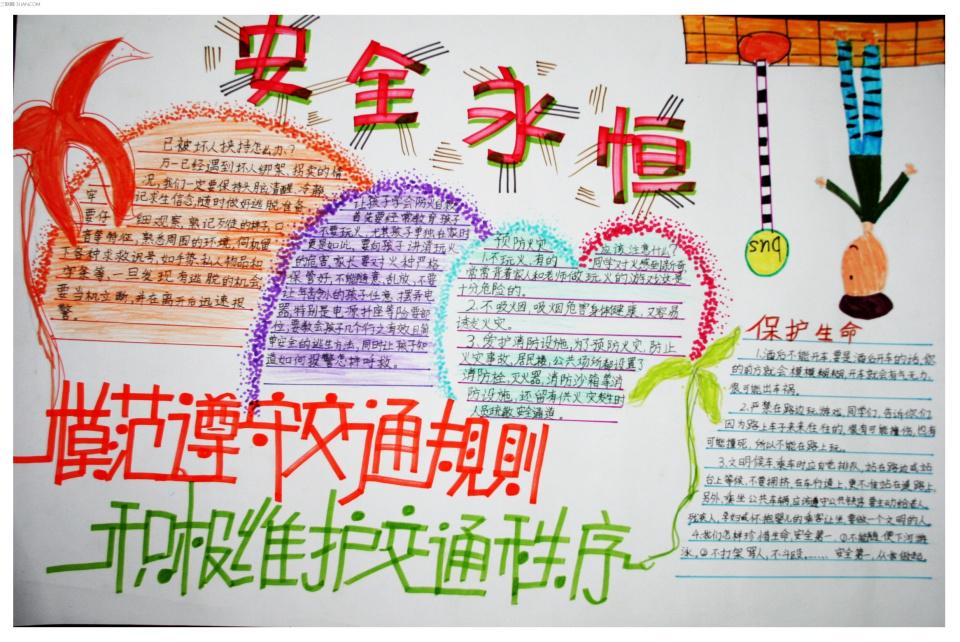 三联网 3LIAN.COM
安全永恒
已被坏人挟持怎么办?
万一已经遇到坏人绑架、拐卖的情
况,我们一定要保持头脑清醒、冷静
牢记求生信念,随时做好逃脱准备
要仔细观察,熟记歹徒的样子、口
音等特征,熟悉周围的环境,伺机留
下各种求救讯号,如手势、私人物品和
字条等,一旦发现有逃脱的机会
要当机立断,并在离开后迅速报
警。
让孩子学会防火自救
首先要经常教育孩子
不要玩火,尤其孩子单独在家时
更是如此,要向孩子讲清玩火
的危害,家长要对火种严格
保管好,不能随意乱放,不要
让
的孩子任意摆弄电
器,特别是电源插座等险要部
位,要教会孩子几个行之有效且简
单安全的逃生方法,同时让孩子知
道如何报警怎样呼救。
预防火灾 应该注意什么?
1.不玩火,有的同学对火感到新奇
常常背着家人和老师做玩火的游戏,这是
十分危险的。
2.不吸烟,吸烟危害身体健康,又容易
诱起火灾。
3.爱护消防设施,为了预防火灾,防止
火灾事故,居民楼,公共场所都设置了
消防栓,灭火器,消防沙箱等消
防设施,还留有供火灾发生时
人员疏散安全通道。
bus
保护生命
1.酒后不能开车,要是酒后开车的话,你
的前方就会模模糊糊,开车就会有气无力,
很可能出车祸。
2.严禁在路边玩游戏,同学们,告诉你们
因为路上车子来来往往的,很有可能撞伤,也有
可能撞死,所以不能在路上玩。
3.文明候车,乘车时应自觉排队,站在路边或站
台上等候,不要拥挤,在车行道上,更不准站在道路上,
另外,乘坐公共车辆,应遵守公共秩序,要主动给老人,
残疾人,孕妇或怀抱婴儿的乘客让坐,要做一个文明的人
4.我们怎样珍惜生命,安全第一,①不能随便下河游
泳,②不打架骂人,不斗殴……安全第一,从我做起。
模范遵守交通规则
积极维护交通秩序